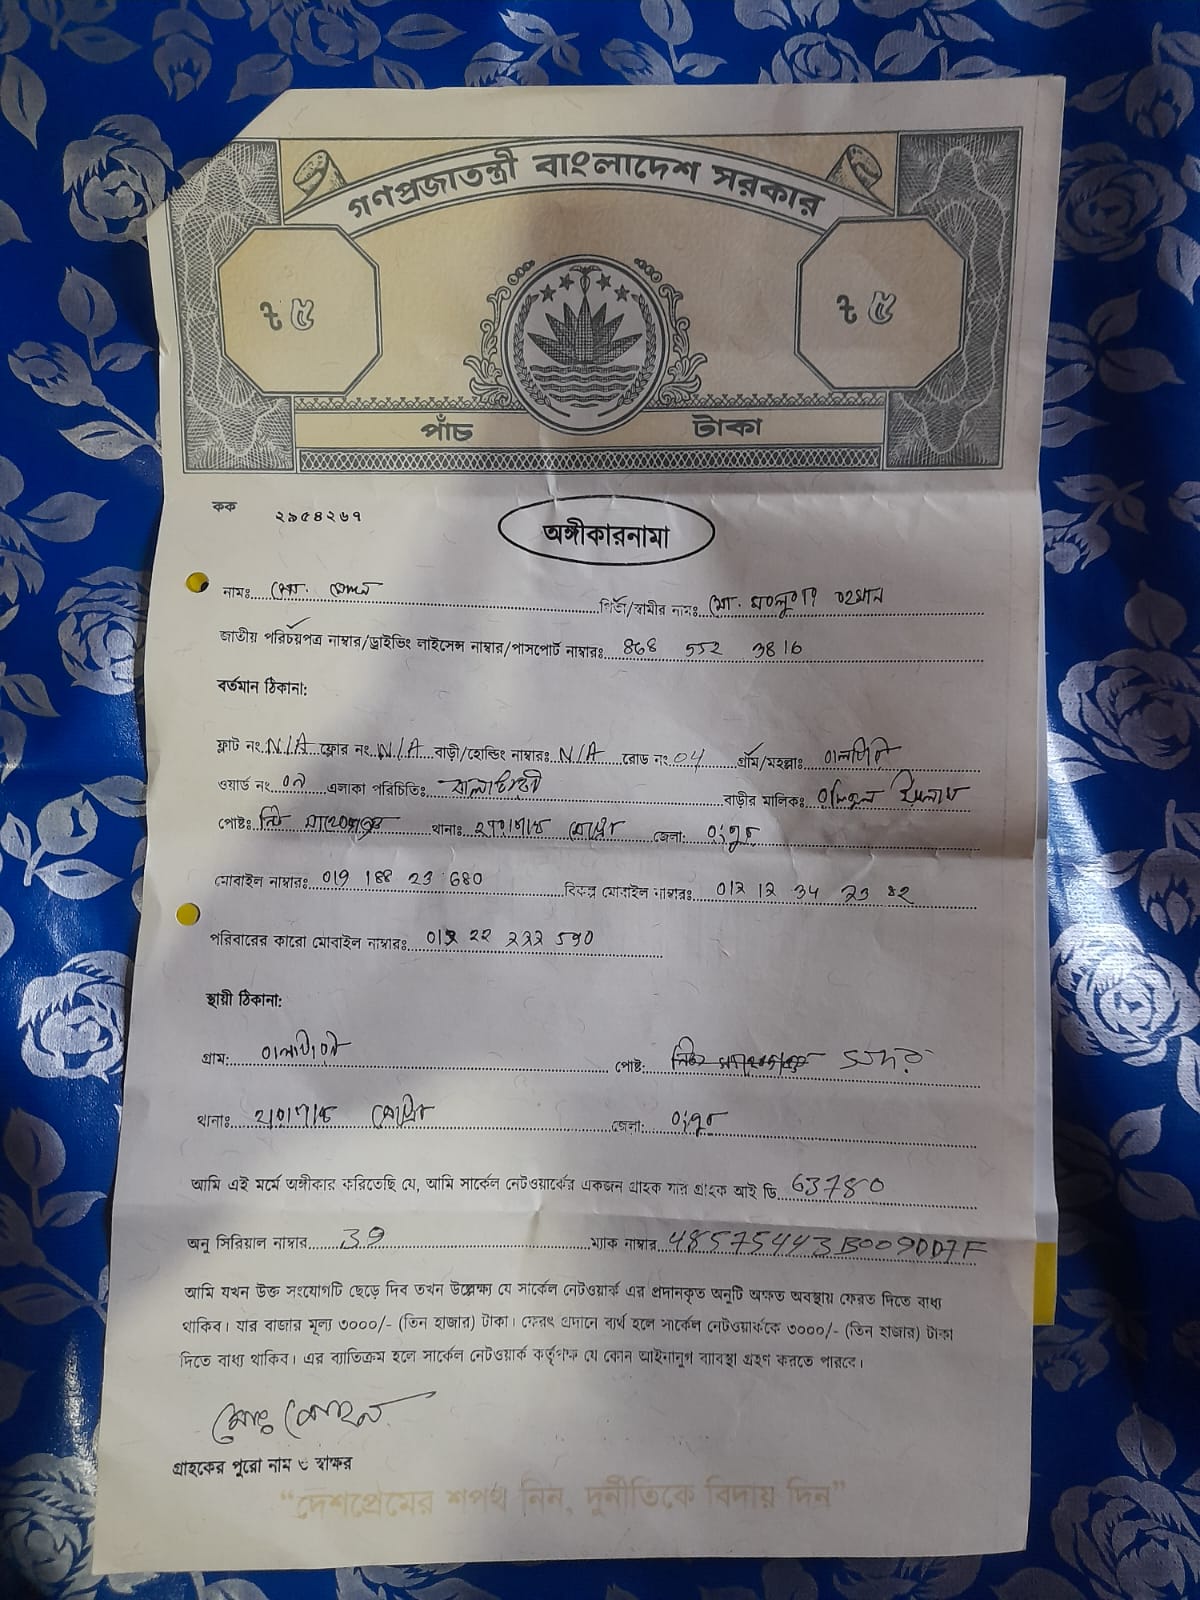 গণপ্রজাতন্ত্রী বাংলাদেশ সরকার
৳ ৫ ৳ ৫
পাঁচ টাকা
কক ২৯৫৪২৬৭
অঙ্গীকারনামা
নামঃ মো. পিতা/স্বামীর নামঃ মো. রহমান
জাতীয় পরিচয়পত্র নাম্বার/ড্রাইভিং লাইসেন্স নাম্বার/পাসপোর্ট নাম্বারঃ 868 552 3816
বর্তমান ঠিকানা:
ফ্লাট নং N/A ফ্লোর নং N/A বাড়ী/হোল্ডিং নাম্বারঃ N/A রোড নং 04 গ্রাম/মহল্লাঃ
ওয়ার্ড নং এলাকা পরিচিতিঃ বাড়ীর মালিকঃ ইসলাম
পোষ্টঃ থানাঃ জেলা: রংপুর
মোবাইল নাম্বারঃ 019 188 23 680 বিকল্প মোবাইল নাম্বারঃ
পরিবারের কারো মোবাইল নাম্বারঃ
স্থায়ী ঠিকানা:
গ্রাম: পোষ্ট: সদর
থানাঃ জেলা: রংপুর
আমি এই মর্মে অঙ্গীকার করিতেছি যে, আমি সার্কেল নেটওয়ার্কের একজন গ্রাহক যার গ্রাহক আই ডি 63780
অনু সিরিয়াল নাম্বার 39 ম্যাক নাম্বার 48575443B009DD7F
আমি যখন উক্ত সংযোগটি ছেড়ে দিব তখন উল্লেক্ষ্য যে সার্কেল নেটওয়ার্ক এর প্রদানকৃত অনুটি অক্ষত অবস্থায় ফেরত দিতে বাধ্য
থাকিব। যার বাজার মূল্য ৩০০০/- (তিন হাজার) টাকা। ফেরৎ প্রদানে ব্যর্থ হলে সার্কেল নেটওয়ার্ককে ৩০০০/- (তিন হাজার) টাকা
দিতে বাধ্য থাকিব। এর ব্যাতিক্রম হলে সার্কেল নেটওয়ার্ক কর্তৃপক্ষ যে কোন আইনানুগ ব্যাবস্থা গ্রহণ করতে পারবে।
গ্রাহকের পুরো নাম ও স্বাক্ষর
“দেশপ্রেমের শপথ নিন, দুর্নীতিকে বিদায় দিন”